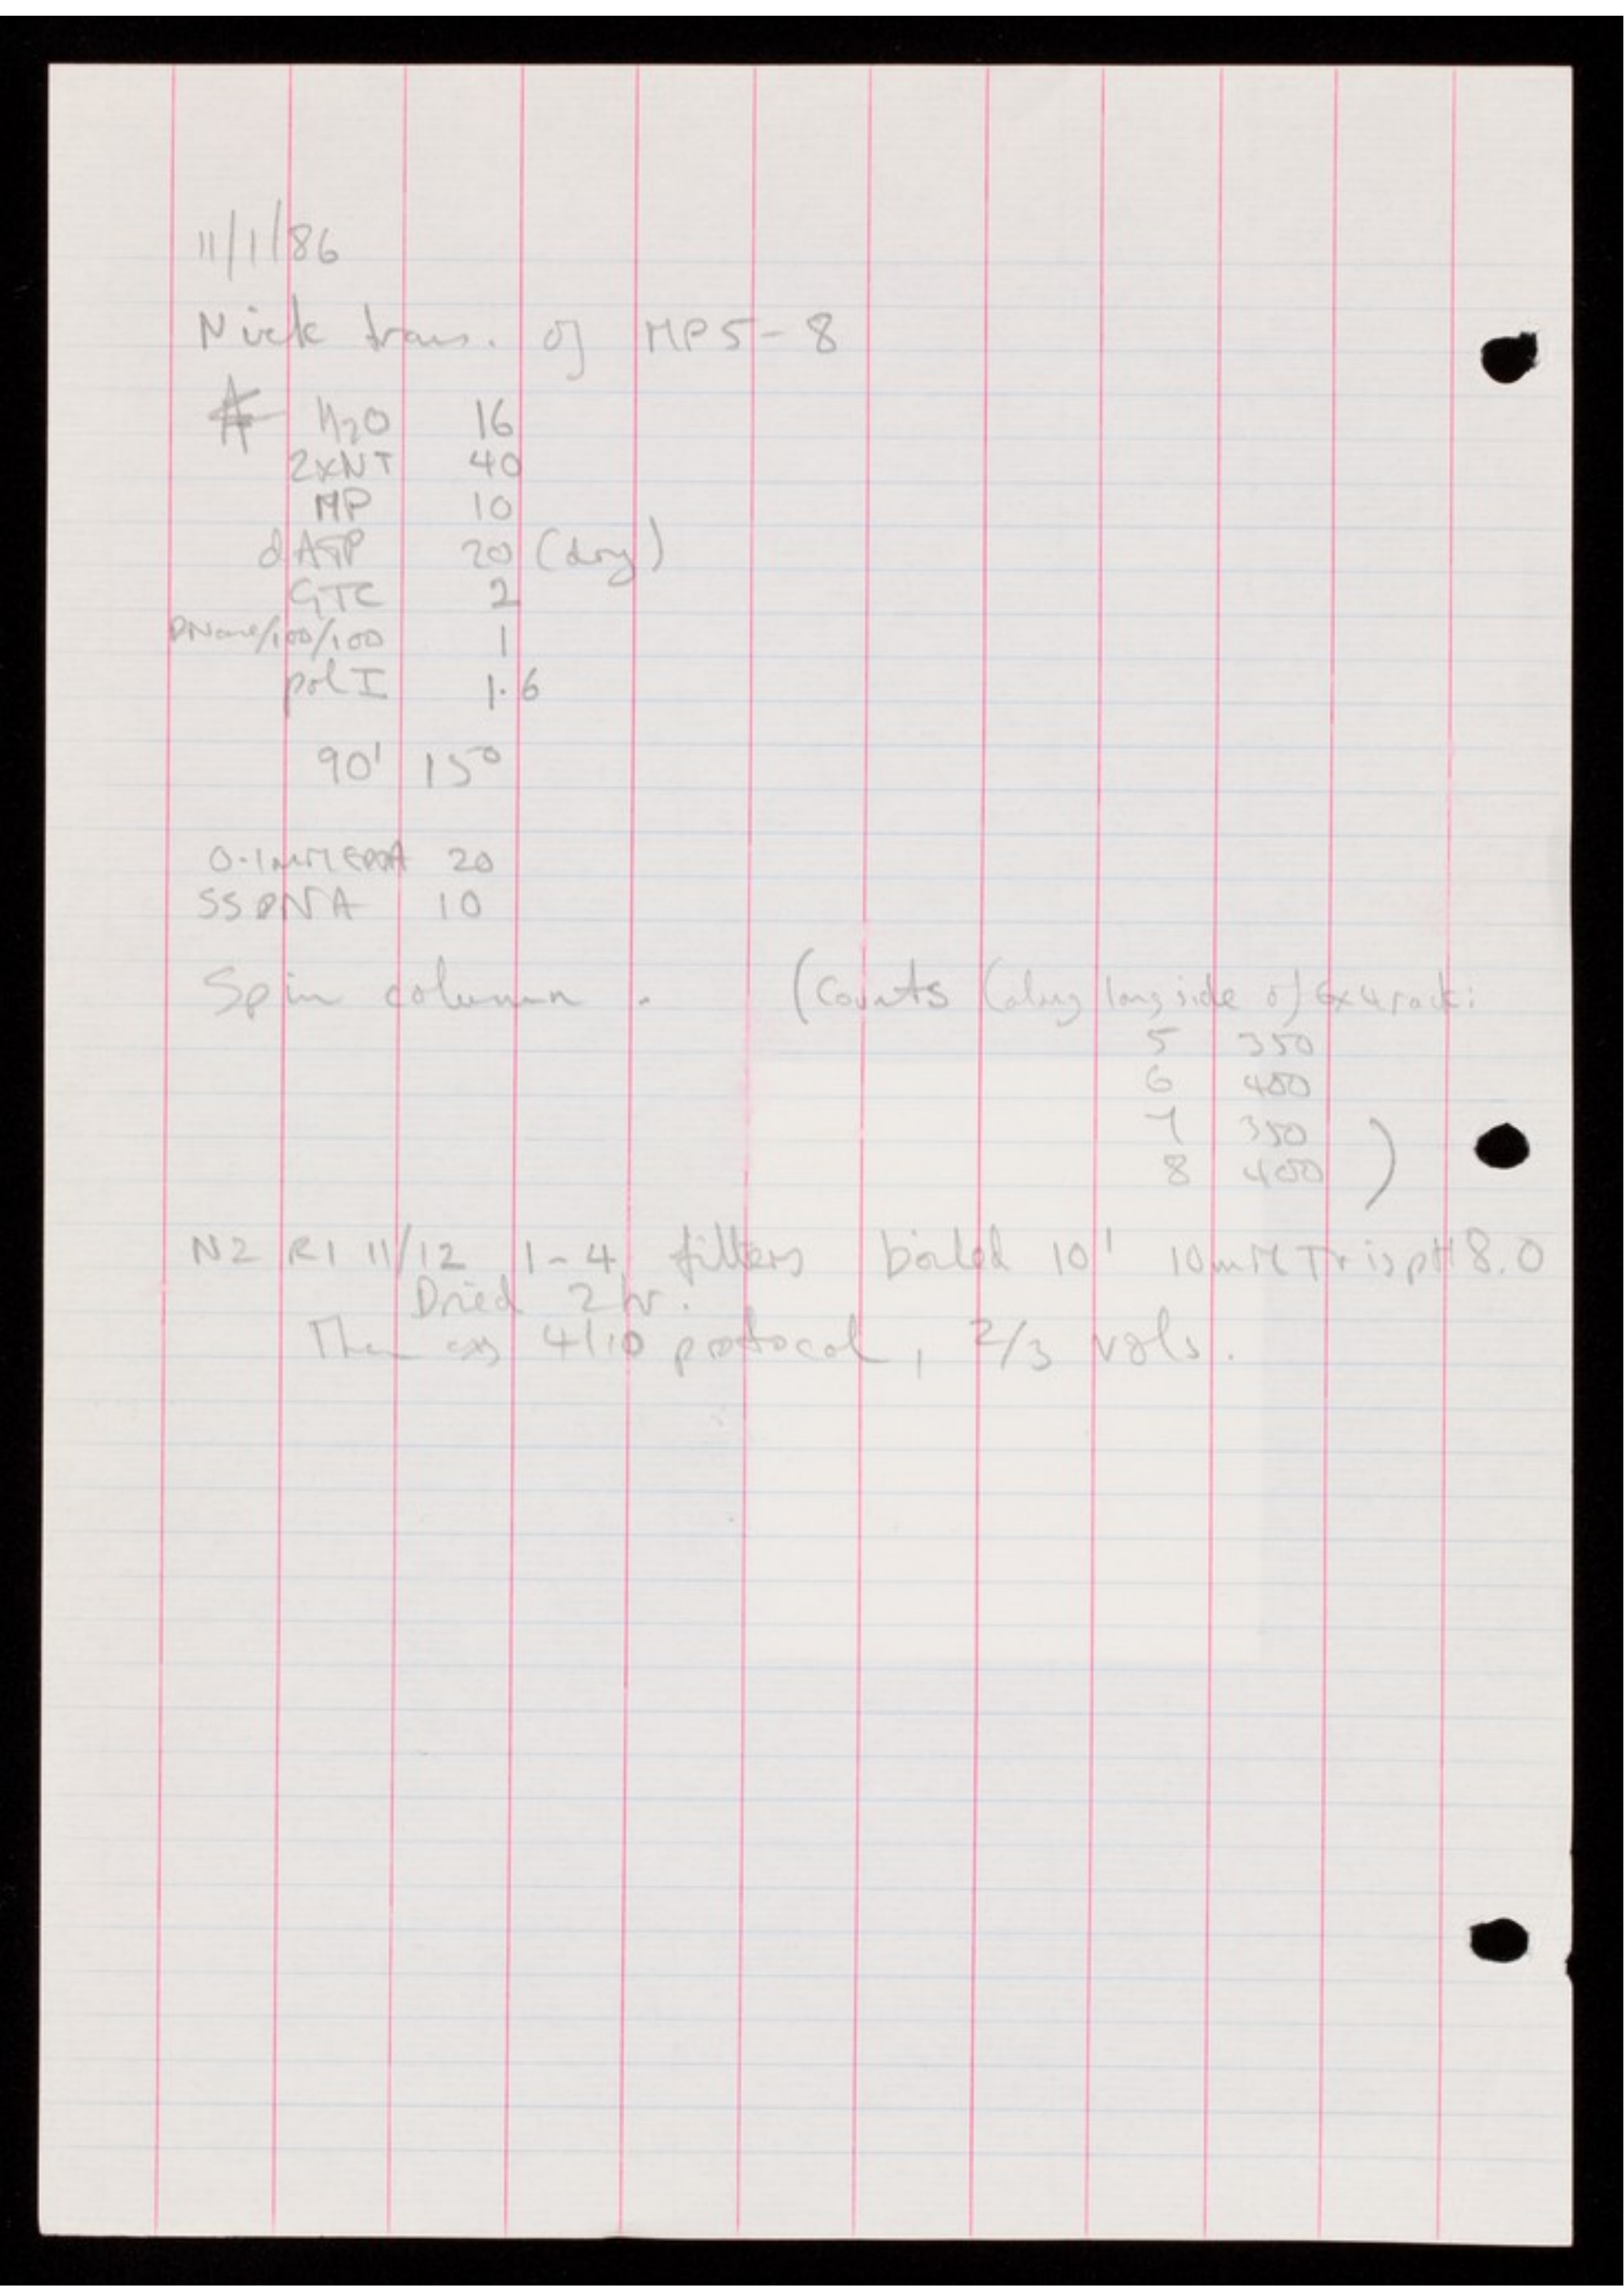 11/1/86
Nick trans. of MP5-8
H2O 16
2xNT 40
MP 10
dATP 20 (dry)
GTC 2
DNase/100/100 1
pol I 1.6
90' 15°
0.1mM EDTA 20
SS DNA 10
Spin column. (Counts (along long side of 6x4 rack:
5 350
6 400
7 350
8 400 )
N2 R1 11/12 1-4 filters boiled 10' 10mM Tris pH 8.0
Dried 2hr.
Then as 4/10 protocol, 2/3 vols.